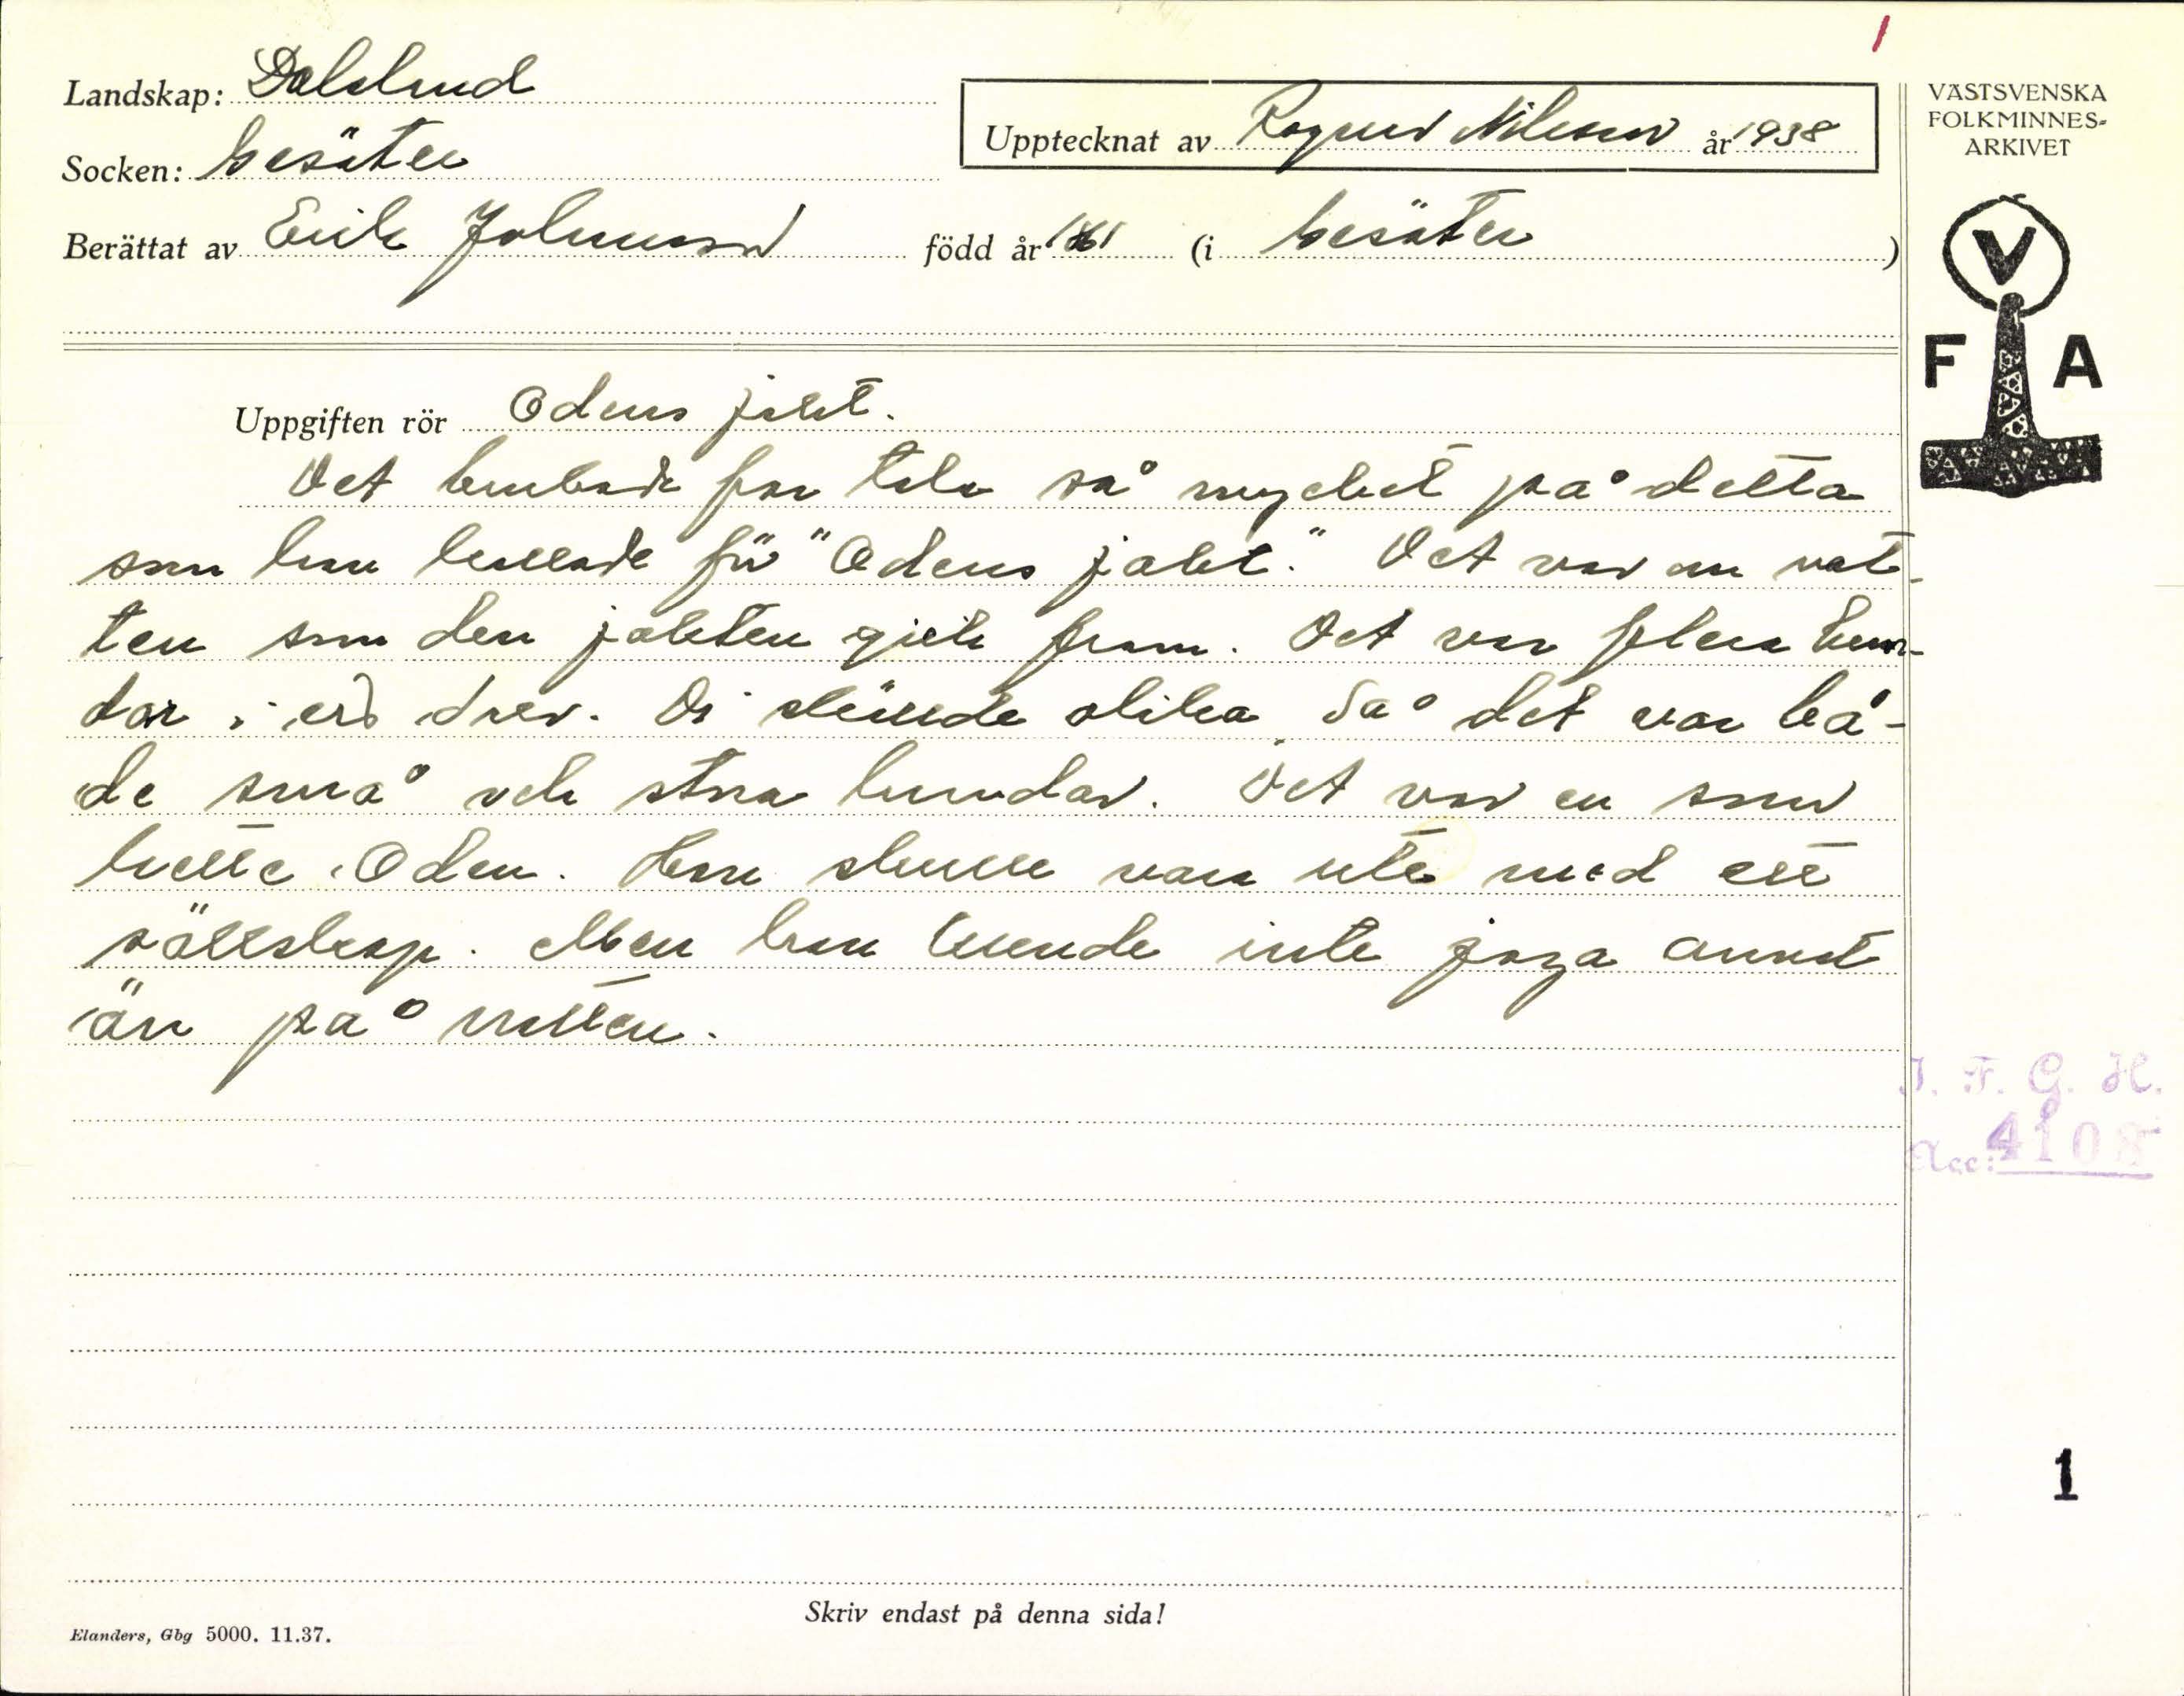 1
Landskap: Dalsland
VÄSTSVENSKA
FOLKMINNES-
ARKIVET
Upptecknat av Ragnar Nilsson år 1938
Socken: bäcksäter
Berättat av Erik Johansson född år 1861 (i )
V
F A
Uppgiften rör Odens jakt.
Det brukade far tala så mycket på detta
som han kallade för "Odens jakt." Det var om nat-
ten som den jakten gick fram. Det var flera hun-
dar i ett drev. Di skällde olika så det var bå-
de små och stora hundar. Det var en som
hette Oden. Han skulle vara ute med ett
sällskap. Men han kunde inte jaga annat
än på natten.
I. F. G. H.
Acc: 4108
1
Skriv endast på denna sida!
Elanders, Gbg 5000. 11.37.